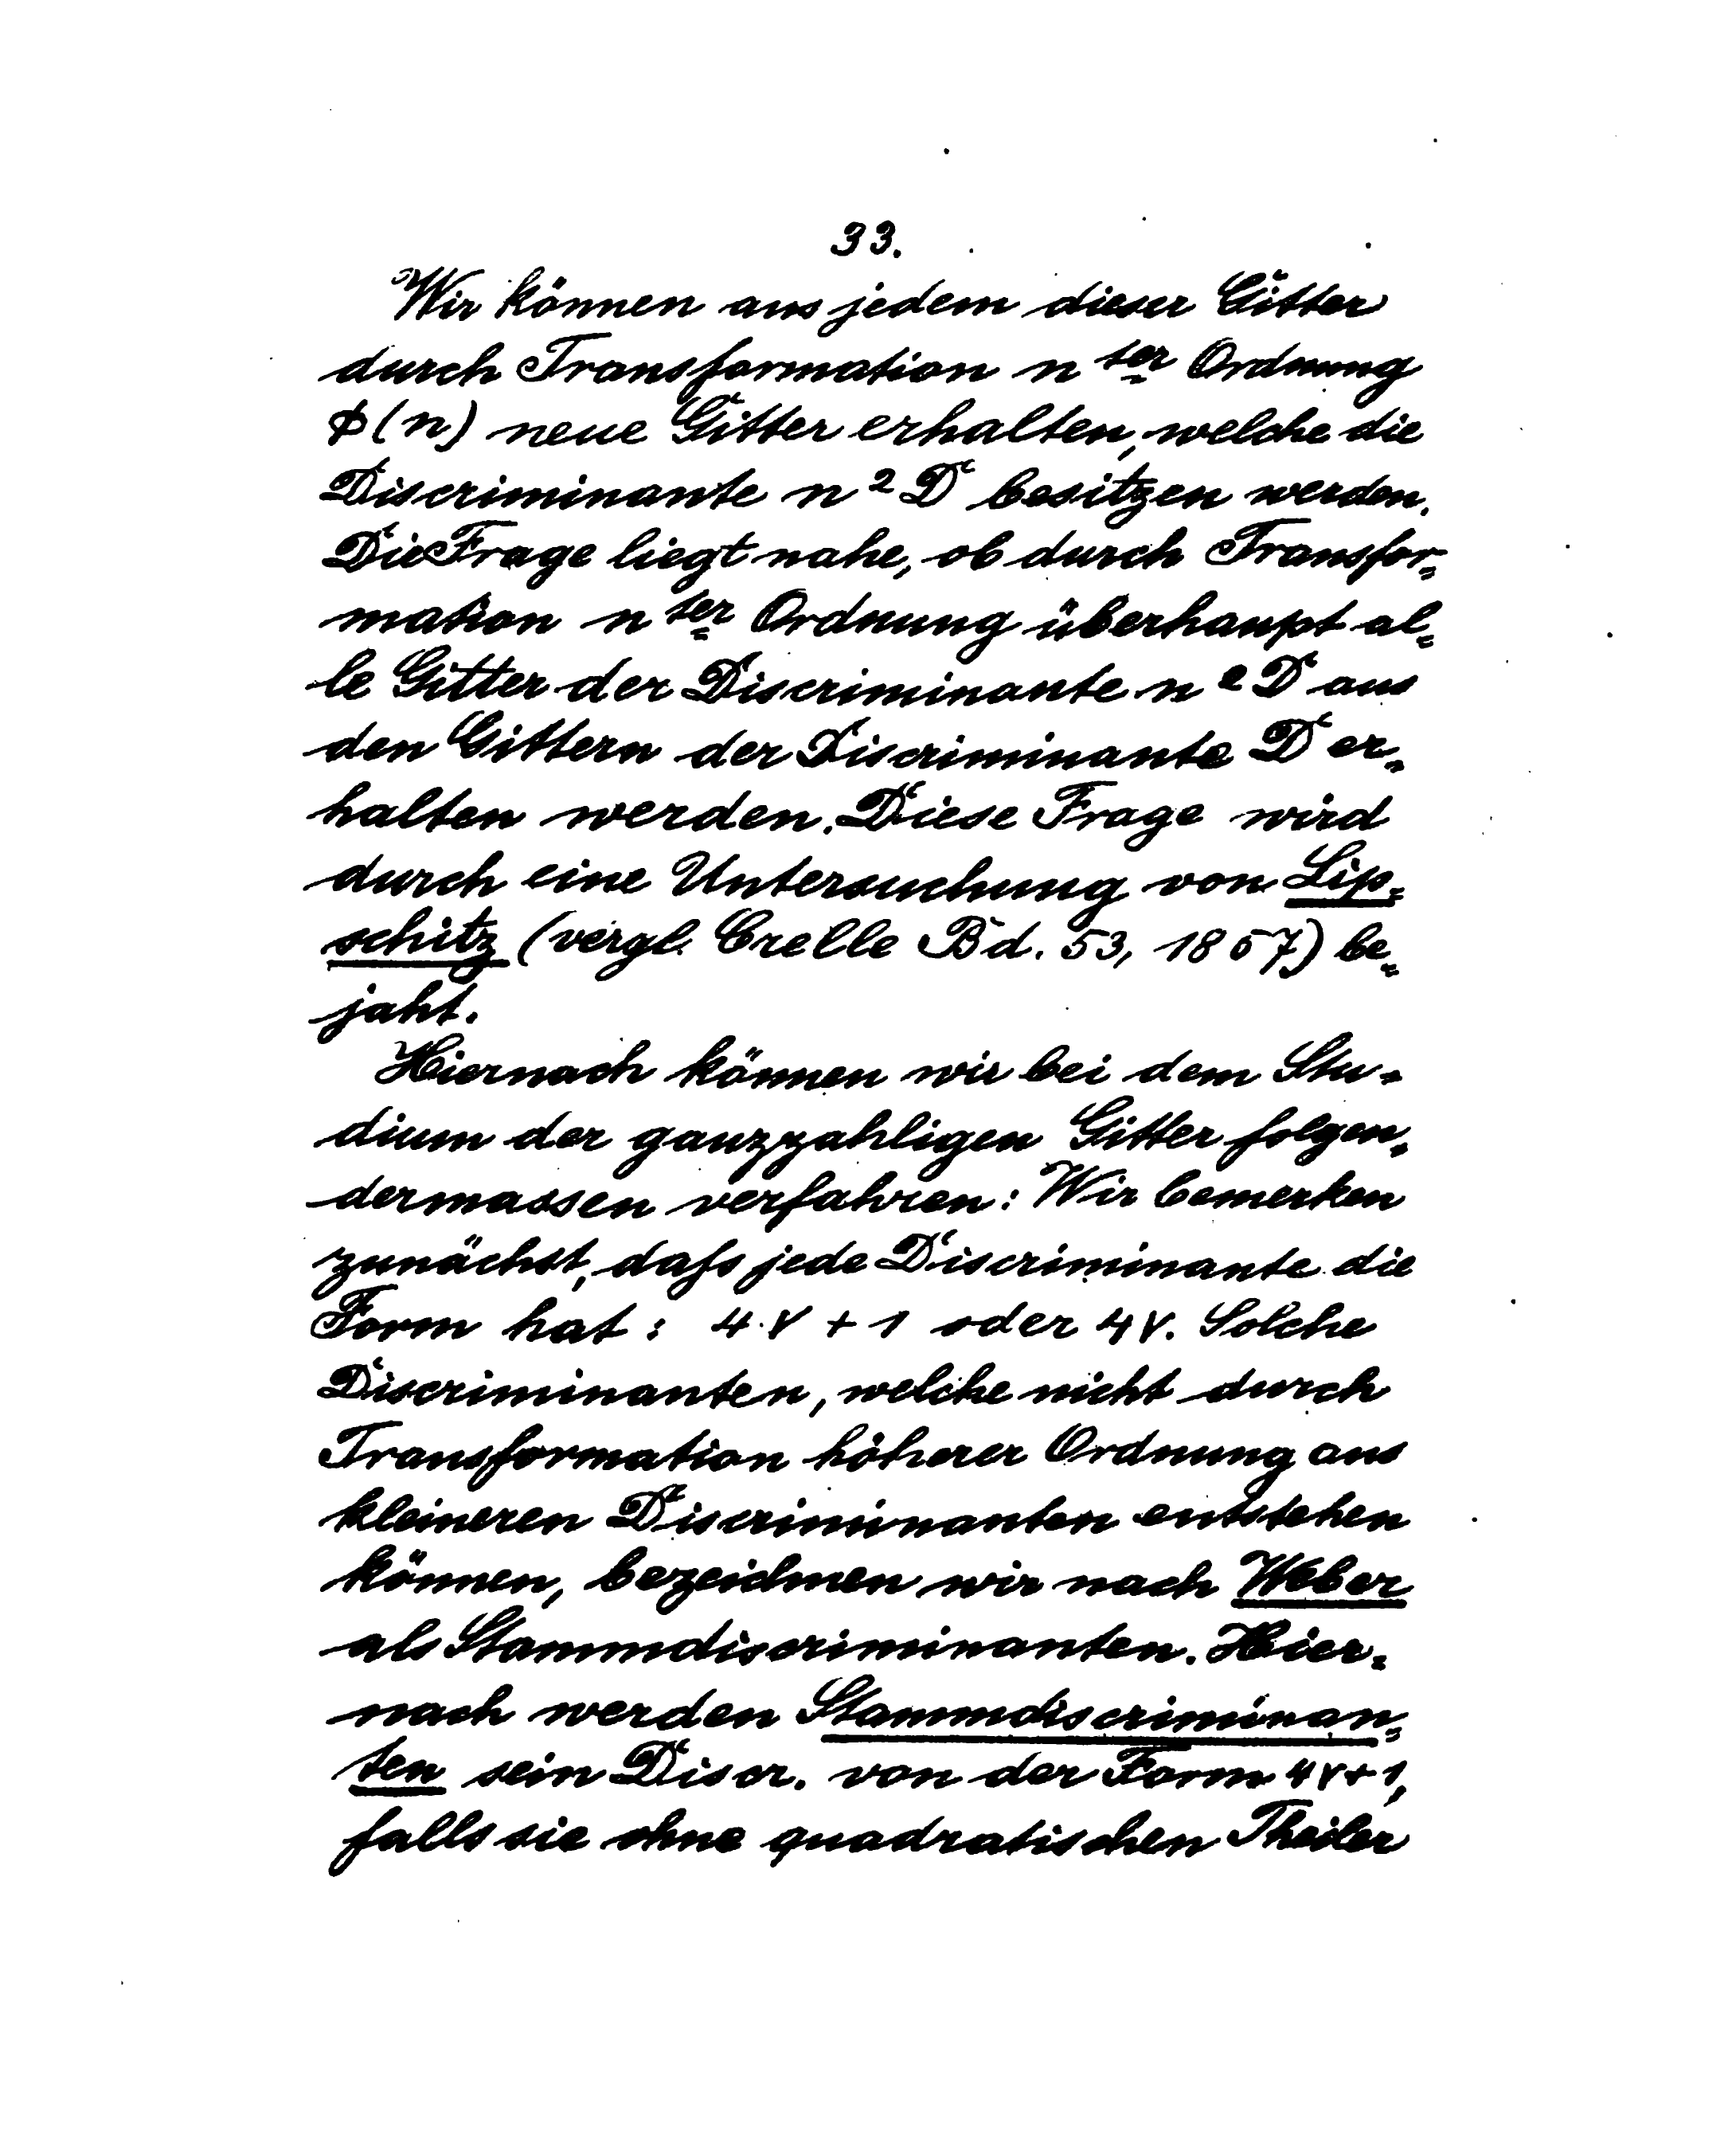 33.
Wir können aus jedem dieser Gitter
durch Transformation n ter Ordnung
ϕ(n) neue Gitter erhalten, welche die
Discriminante n² D besitzen werden.
Die Frage liegt nahe, ob durch Transfor=
mation n ter Ordnung überhaupt al=
le Gitter der Discriminante n² D aus
den Gittern der Discriminante D er=
halten werden. Diese Frage wird
durch eine Untersuchung von Lip=
schitz (vergl. Crelle Bd. 53, 1857) be=
jaht.
Hiernach können wir bei dem Stu=
dium der ganzzahligen Gitter folgen=
dermassen verfahren: Wir bemerken
zunächst, dafs jede Discriminante die
Form hat: 4·ν + 1 oder 4ν. Solche
Discriminanten, welche nicht durch
Transformation höherer Ordnung aus
kleineren Discriminanten entstehen
können, bezeichnen wir nach Weber
als Stammdiscriminanten. Hier=
nach werden Stammdiscriminan=
ten sein Discr. von der Form 4ν+1,
falls sie ohne quadratischen Theiler